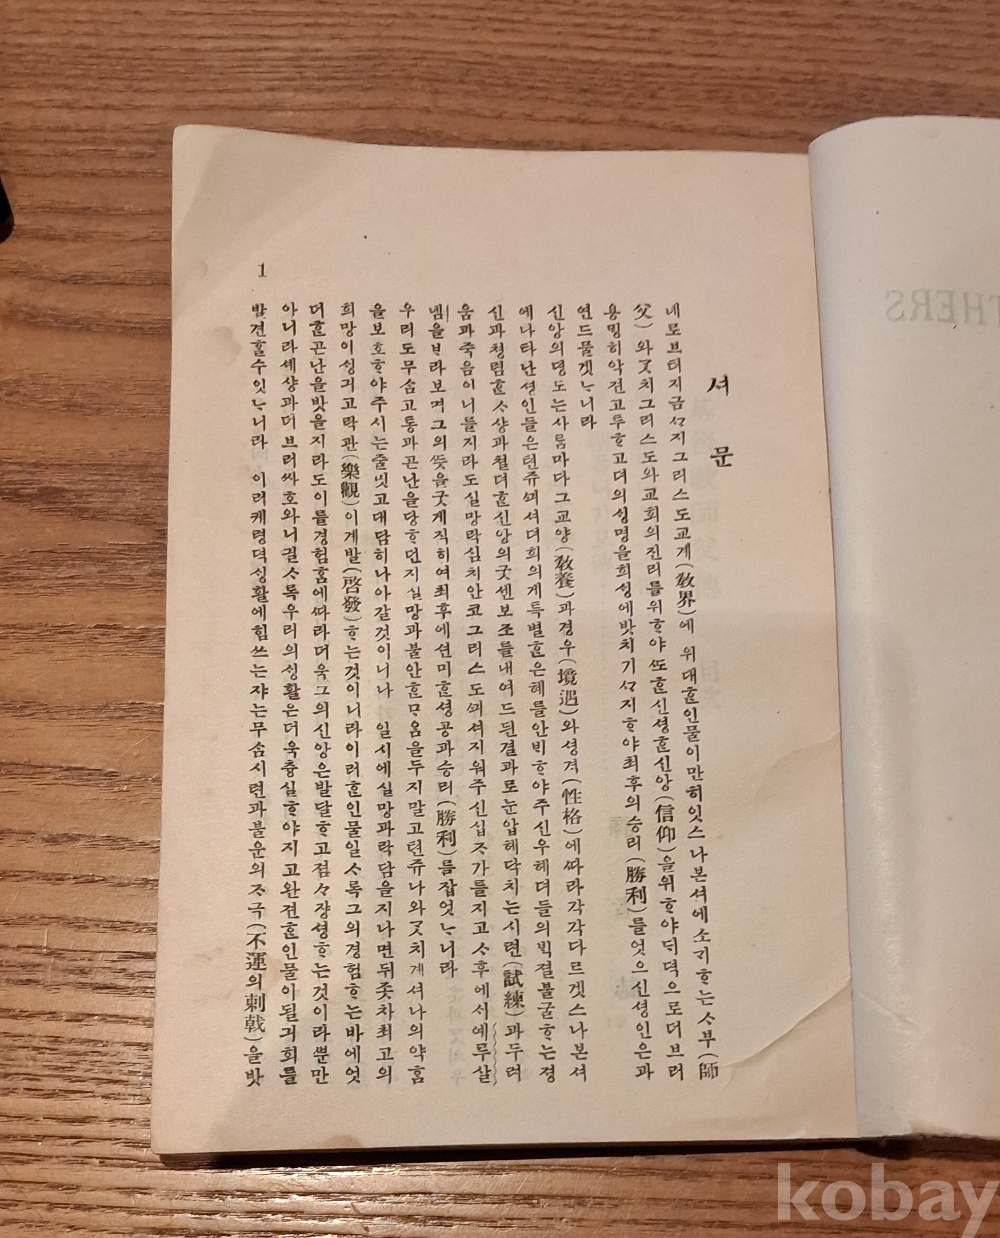 셔문
녜로브터지금ㅅ지그리스도교계(敎界)에 위대ᄒᆞᆫ인물이만히잇스나본셔에소ᄀᆡᄒᆞ는ᄉᆞ부(師
父)와ᄀᆞᆺ치그리스도와교회의진리를위ᄒᆞ야ᄯᅩᄒᆞᆫ신셩ᄒᆞᆫ신앙(信仰)을위ᄒᆞ야뎌덕으로더브러
용ᄆᆡᆼ히악젼고투ᄒᆞ고뎌의ᄉᆡᆼ명을희ᄉᆡᆼ에밧치기ㅅ지ᄒᆞ야최후의승리(勝利)를엇으신셩인은과
연드물겟ᄂᆞ니라
신앙의뎡도는사ᄅᆞᆷ마다그교양(敎養)과경우(境遇)와셩격(性格)에ᄯᅡ라각각다르겟스나본셔
에나타난셩인들은텬쥬ᄭᅴ셔뎌희의게특별ᄒᆞᆫ은혜를안ᄇᆡᄒᆞ야주신우헤뎌들의ᄇᆡᆨ졀불굴ᄒᆞ는졍
신과쳥렴ᄒᆞᆫᄉᆞ샹과텰뎌ᄒᆞᆫ신앙의굿센보조를내여드딘결과로눈압헤닥치는시련(試練)과두려
움과죽음이니를지라도실망락심치안코그리스도ᄭᅴ셔지워주신십ᄌᆞ가를지고ᄉᆞ후에서예루살
렘을ᄇᆞ라보며그의ᄯᅳᆺ을굿게직히여최후에션미ᄒᆞᆫ셩공과승리(勝利)를잡엇ᄂᆞ니라
우리도무ᄉᆞᆷ고통과곤난을당ᄒᆞ던지실망과불안ᄒᆞᆫᄆᆞᄋᆞᆷ을두지말고텬쥬나와ᄀᆞᆺ치계셔나의약ᄒᆞᆷ
을보호ᄒᆞ야주시는줄밋고대담히나아갈것이니나 일시에실망과락담을지나면뒤좃차최고의
희망이ᄉᆡᆼ기고락관(樂觀)이계발(啓發)ᄒᆞ는것이니라이러ᄒᆞᆫ인물일ᄉᆞ록그의경험ᄒᆞ는바에엇
더ᄒᆞᆫ곤난을밧을지라도이를경험ᄒᆞᆷ에ᄯᅡ라더욱그의신앙은발달ᄒᆞ고졈々쟝셩ᄒᆞ는것이라ᄲᅮᆫ만
아니라셰샹과더브러싸호와니긜ᄉᆞ록우리의ᄉᆡᆼ활은더욱츙실ᄒᆞ야지고완젼ᄒᆞᆫ인물이될긔회를
발견ᄒᆞᆯ수잇ᄂᆞ니라 이러케령뎍ᄉᆡᆼ활에힘쓰는쟈는무ᄉᆞᆷ시련과불운의ᄌᆞ극(不運의刺戟)을밧
1
THERS
kobay